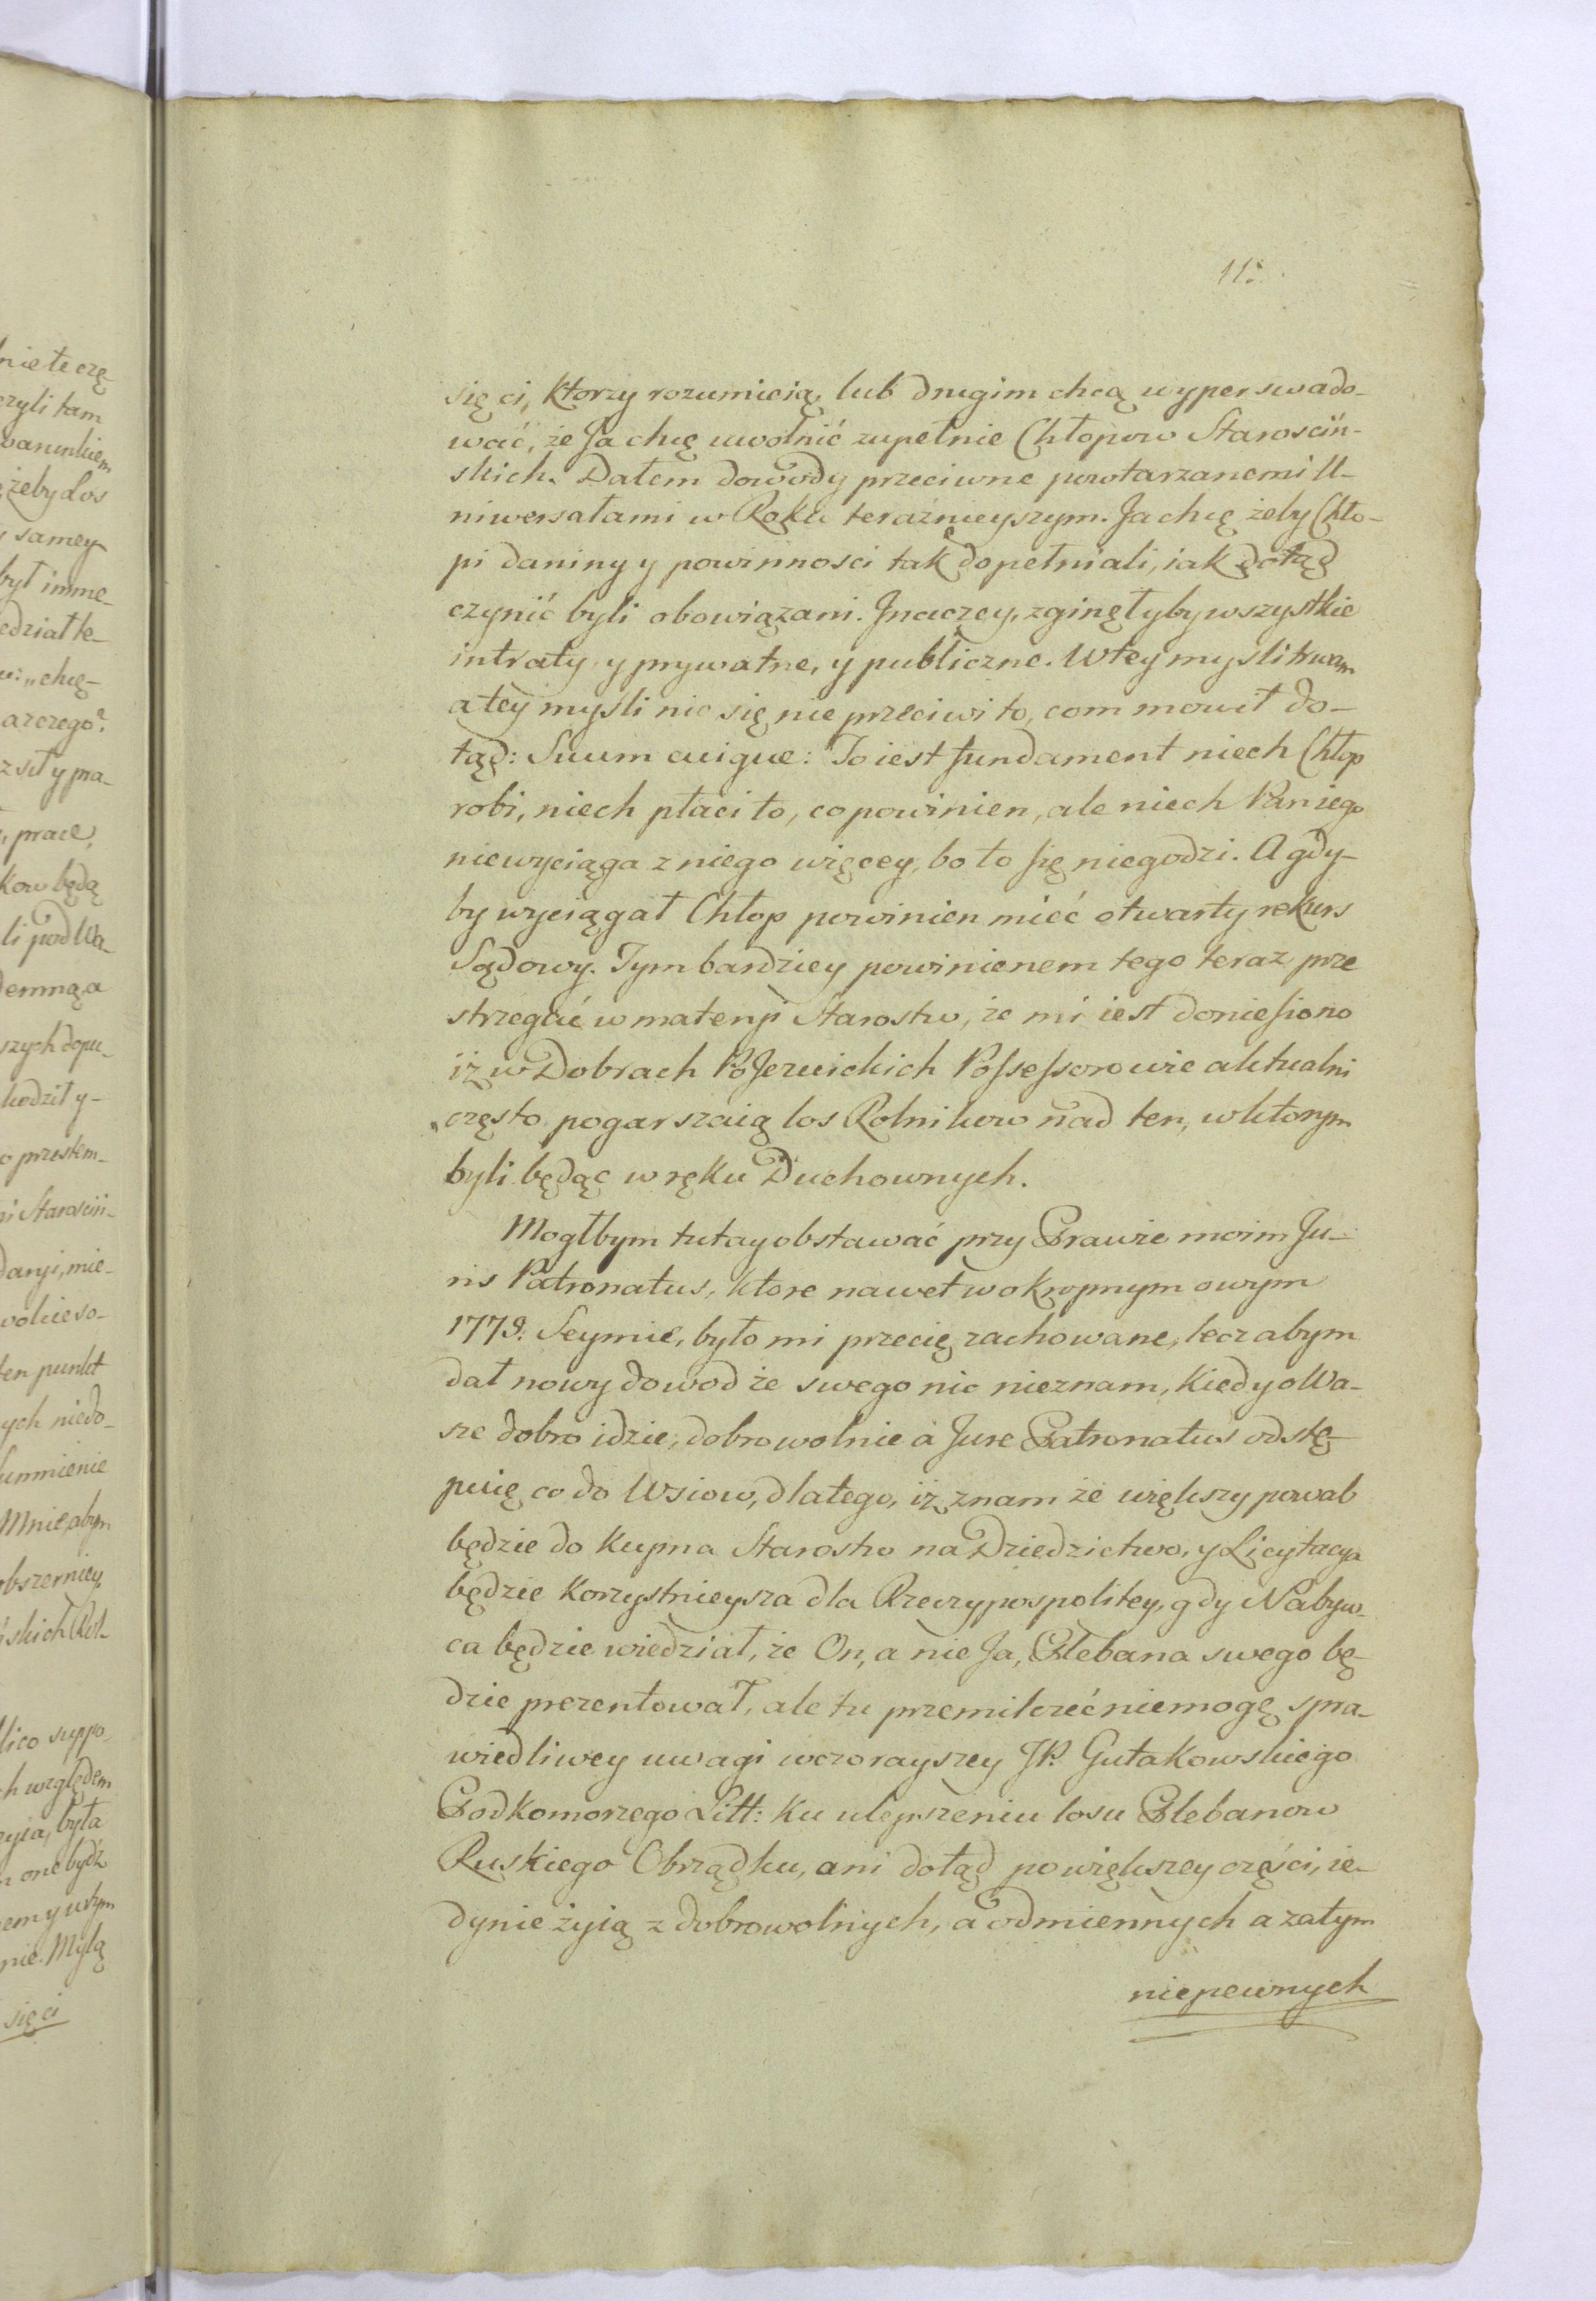 11.
się ci, ktorzy rozumieią, lub drugim chcą wyperswado-
wać, że Ja chcę uwolnić zupełnie Chłopow Starosciń-
skich. Dałem dowody przeciwne powtarzanemi U-
niwersałami w Roku teraźnieyszym. Ja chcę żeby Chło-
pi daniny y powinności tak dopełniali, iak dotąd
czynić byli obowiązani. Jnaczey, zginęłyby wszystkie
intraty, y prywatne, y publiczne. W tey myśli trwam
a tey myśli nic się nie przeciwi to, com mowił do-
tąd: Suum cuique: To iest fundament niech Chłop
robi, niech płaci to, co powinien, ale niech Pan iego
niewyciąga z niego więcey, bo to się niegodzi. A gdy-
by wyciągał Chłop powinien mieć otwarty rekurs
Sądowy. Tym bardziey powinienem tego teraz prze
strzegać w materyi Starostw, że mi iest doniesiono
iż w Dobrach PoJezuickich Possessorowie aktualni
często pogarszaią los Rolnikow nad ten, w ktorym
byli będąc w ręku Duchownych.
Mogłbym tutay obstawać przy Prawie moim Ju-
ris Patronatus, ktore nawet w okropnym owym
1773. Seymie, było mi przecię zachowane, lecz abym
dał nowy dowod że swego nic nieznam, kiedy o Wa-
sze dobro idzie, dobrowolnie à Jure Patronatus odstę-
puię co do Wsiow, dlatego, iż znam że większy powab
będzie do kupna Starostw na Dziedzictwo, y Licytacya
będzie korzystnieysza dla Rzeczypospolitey, gdy Nabyw-
ca będzie wiedział, że On, a nie Ja, Plebana swego bę-
dzie prezentował, ale tu przemilczeć niemogę spra-
wiedliwey uwagi wczorayszey JP. Gutakowskiego
Podkomorzego Litt: ku ulepszeniu losu Plebanow
Ruskiego Obrządku, ani dotąd po większey części, ie-
dynie żyią z dobrowolnych, a odmiennych a zatym
niepewnych